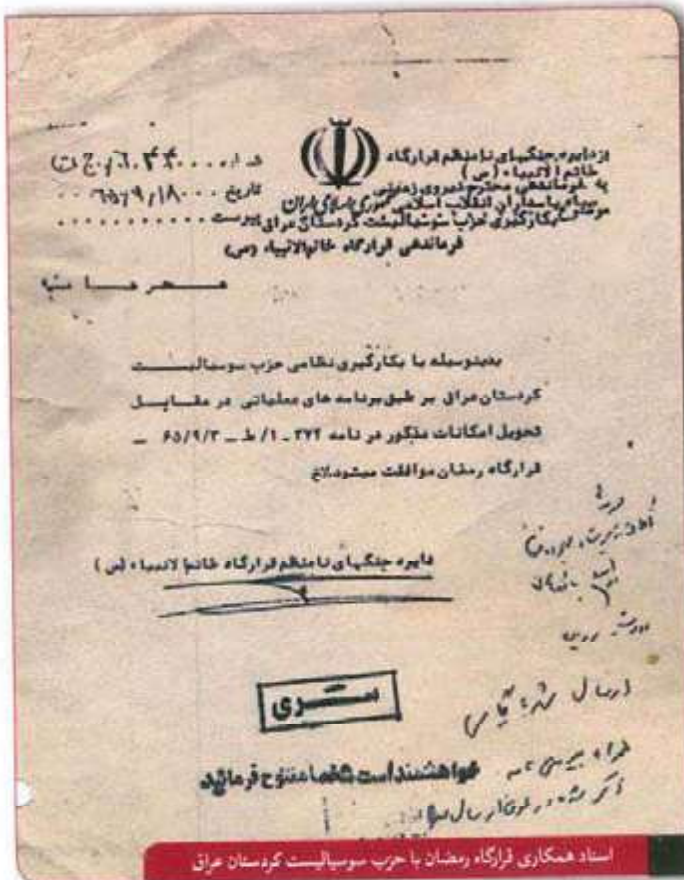 از دایره جنگهای نامنظم قرارگاه
خاتم الانبیاء (ص)
به فرماندهی محترم نیروی زمینی
سپاه پاسداران انقلاب اسلامی
جمهوری اسلامی ایران
بکارگیری حزب سوسیالیست کردستان عراق
شماره
تاریخ ۶۵/۹/۱۸
پیوست
فرماندهی قرارگاه خاتم الانبیاء (ص)
بدینوسیله با بکارگیری نظامی حزب سوسیالیست
کردستان عراق بر طبق برنامه های عملیاتی در مقابل
تحویل امکانات مذکور در نامه ۲۷۲ - ۱/ط - ۶۵/۹/۳ -
قرارگاه رمضان موافقت میشود.لاخ
دایره جنگهای نامنظم قرارگاه خاتم الانبیاء (ص)
ارسال شد
سری
خواهشمند است شخصا مفتوح فرمائید
اسناد همکاری قرارگاه رمضان با حزب سوسیالیست کردستان عراق